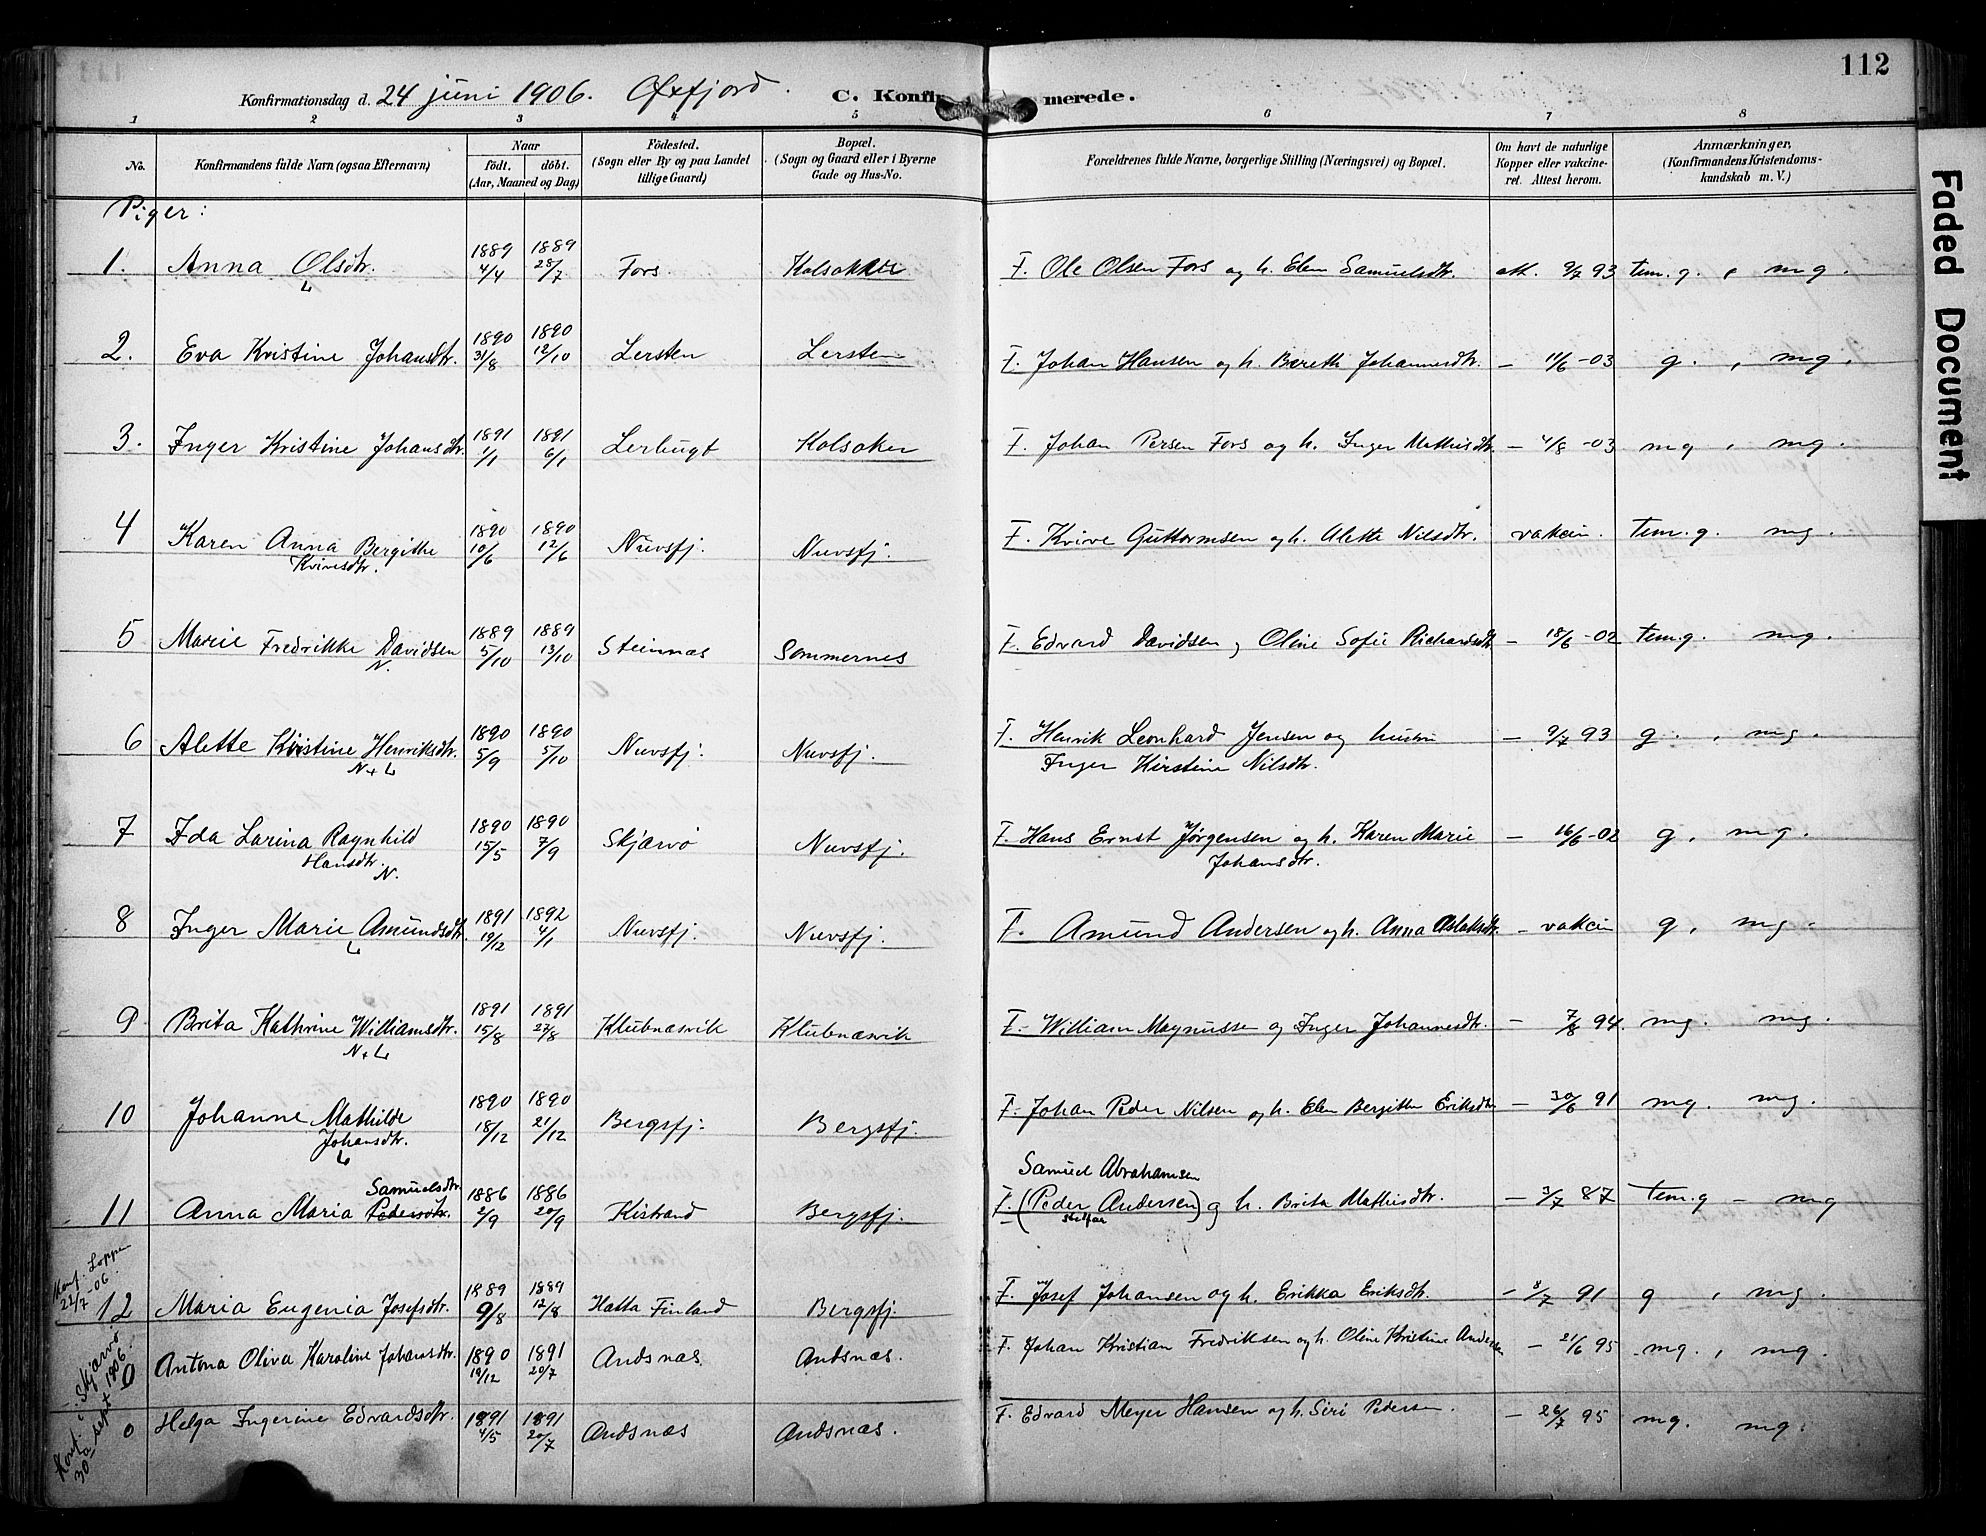 112
Konfirmationsdag d. 24 juni 1906. Øxfjord. C. Konfir merede.
1 2 3 4 5 6 7 8
No. Konfirmandens fulde Navn (ogsaa Efternavn) Naar født. døbt. (Aar, Maaned og Dag) Fødested. (Sogn eller By og paa Landet tillige Gaard) Bopæl. (Sogn og Gaard eller i Byerne Gade og Hus-No. Forældrenes fulde Navne, borgerlige Stilling (Næringsvei) og Bopæl. Om havt de naturlige Kopper eller vakcineret. Attest herom. Anmærkninger, (Konfirmandens Kristendomskundskab m. V.)
Piger:
1. Anna Olsdtr. 1889 4/4 1889 28/7 Fors. Kolsaker F. Ole Olsen Fors og h. Elen Samuelsdtr. att. 9/7 93 tem. g. , mg.
L
2. Eva Kristine Johansdtr. 1890 31/8 1890 12/10 Lersten Lersten F. Johan Hansen og h. Bereth Johannesdtr. — 11/6 -03 g. , mg.
3. Inger Kristine Johansdtr. 1891 1/1 1891 6/1 Lerbugt Kolsaker F. Johan Persen Fors og h. Inger Mathisdtr. — 4/8 -03 mg , mg.
4 Karen Anna Bergithe 1890 10/6 1890 12/6 Nuvsfj. Nuvsfj. F. Kvive Guttormsen og h. Alette Nilsdtr. vakcin. tem. g. mg.
Kvivesdtr.
5 Marie Fredrikke Davidsen 1889 5/10 1889 13/10 Steinnas Sommernes F. Edvard Davidsen, Oline Sofie Richardsdtr — 18/6 -02 tem.g. mg.
N.
6 Alette Kristine Henriksdtr. 1890 5/9 1890 5/10 Nuvsfj. Nuvsfj. F. Henrik Leonhard Jensen og hustru — 9/7 93 g. , mg.
N + L Inger Kirstine Nilsdtr.
7 Ida Larina Ragnhild 1890 15/5 1890 7/9 Skjærvö Nuvsfj. F. Hans Ernst Jørgensen og h. Karen Marie — 16/6 -02 g, mg.
Hansdtr. N. Johansdtr.
8 Inger Marie Amundsdtr. 1891 19/12 1892 4/1 Nuvsfj. Nuvsfj. F. Amund Andersen og h. Anna Aslaksdtr. — vakcin g, mg.
L
9 Brita Kathrine Williamsdtr. 1891 15/8 1891 27/8 Klubnæsvik Klubnæsvik F. William Magnussen og Inger Johannesdtr. — 7/8 94. mg. mg.
N + L
10 Johanne Mathilde 1890 18/12 1890 21/12 Bergsfj. Bergsfj. F. Johan Peder Nilsen og h. Elen Bergitte Eriksdtr — 30/6 91 mg. mg.
Johansdtr.
L
Samuelsdtr. Samuel Abrahamsen
11 Anna Maria Pedersdtr. 1886 2/9 1886 20/9 Kistrand Bergsfj. F. (Peder Andersen) og h. Brita Mathisdtr. — 3/7 87 tem.g — mg
stedfar
Konf. Loppen 22/7-06.
12 Maria Eugenia Josefsdtr. 1889 9/8 1889 12/8 Hatta Finland Bergsfj. F. Josef Johansen og h. Erikka Eriksdtr. — 8/7 91 g , mg.
0 Antona Oliva Karoline Johansdtr. 1890 19/12 1891 20/7 Andsnæs. Andsnæs. F. Johan Kristian Fredriksen og h. Oline Kristine Andersen — 21/6 95 mg. , mg.
0 Helga Ingerine Edvardsdtr. 1891 4/5 1891 20/7 Andsnæs Andsnæs. F. Edvard Meyer Hansen og h. Siri Pedersen. — 26/7 95 mg. mg.
Konf. i Skjærvö 30te sept 1906.
Faded Document